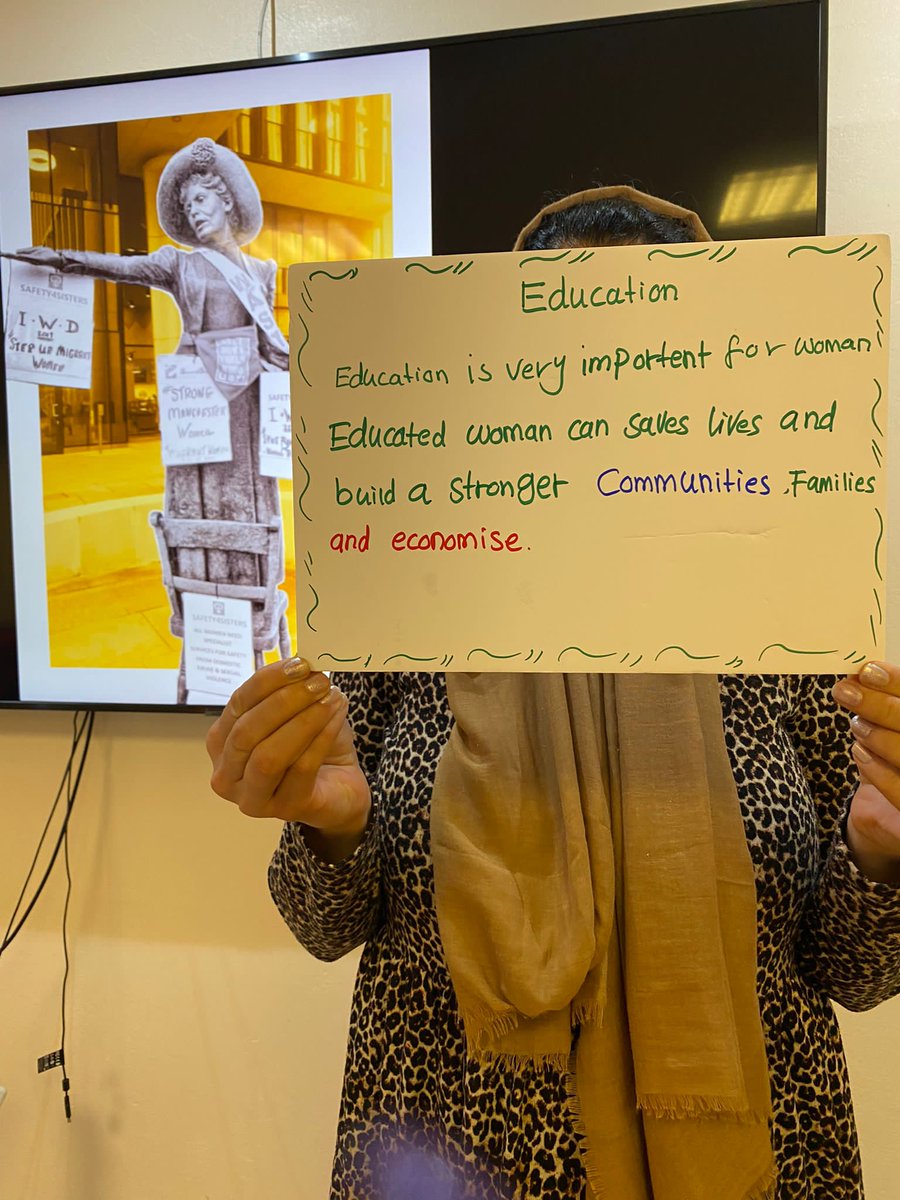 Education
Education is very importent for woman
Educated woman can saves lives and
build a stronger Communities, Families
and economise.
SAFETY4SISTERS
I.W.D
STEP UP MIGRANT
WOMEN
#STRONG
MANCHESTER
WOMEN
SAFETY4SISTERS
ALL WOMEN NEED
SPECIALIST
SERVICES FOR SAFETY
FROM DOMESTIC
ABUSE & SEXUAL
VIOLENCE